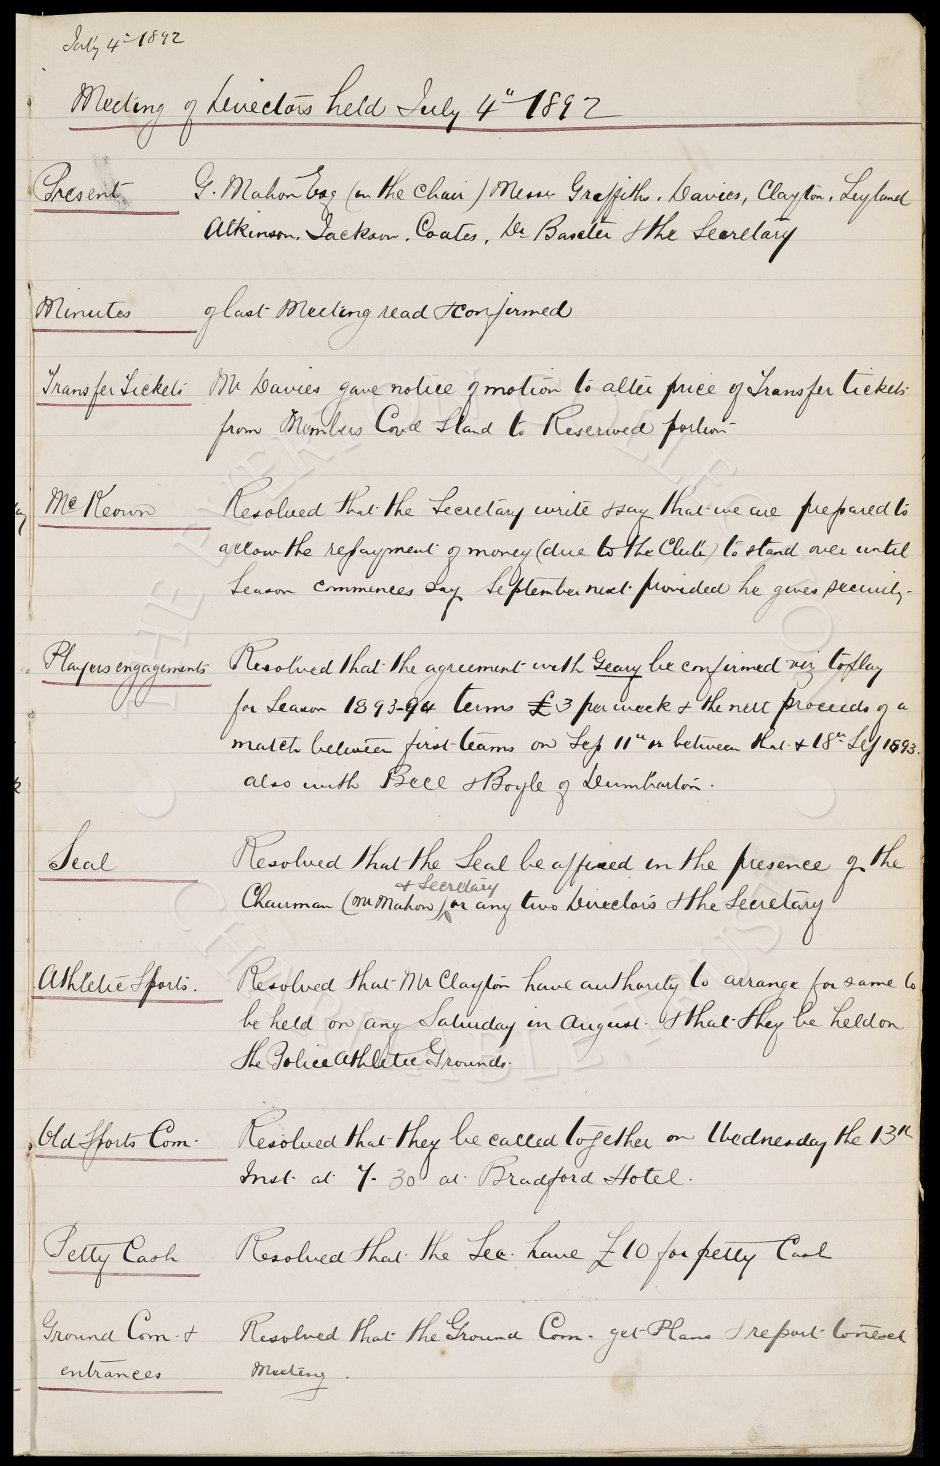 July 4th 1892
Meeting of Directors held July 4th 1892
Present G. Mahon Esq (in the Chair) Messrs Griffiths, Davies, Clayton, Leyland
Atkinson, Jackson, Coates, Dr Baxter & the Secretary
Minutes of last Meeting read & confirmed
Transfer Tickets Mr Davies gave notice of motion to alter price of Transfer tickets
from Members Cov'd Stand to Reserved portion
McKeown Resolved that the Secretary write & say that we are prepared to
allow the repayment of money (due to the Club) to stand over until
Season commences say September next provided he gives security.
Players engagements Resolved that the agreement with Geary be confirmed viz to play
for Season 1893-94 terms £3 per week & the nett proceeds of a
match between first teams on Sep 11th or between that & 18th Sep 1893.
also with Bell & Boyle of Dumbarton.
Seal Resolved that the Seal be affixed in the presence of the
& Secretary
Chairman (Mr Mahon) or any two Directors & the Secretary
Athletic Sports. Resolved that Mr Clayton have authority to arrange for same to
be held on any Saturday in August. & that they be held on
the Police Athletic Grounds.
Old Sports Com. Resolved that they be called together on Wednesday the 13th
Inst. at 7.30 at Bradford Hotel.
Petty Cash Resolved that the Sec. have £10 for petty Cash
Ground Com. & Resolved that the Ground Com. get Plans & report to next
entrances Meeting.
THE EVERTON COLLECTION
CHARITABLE TRUST